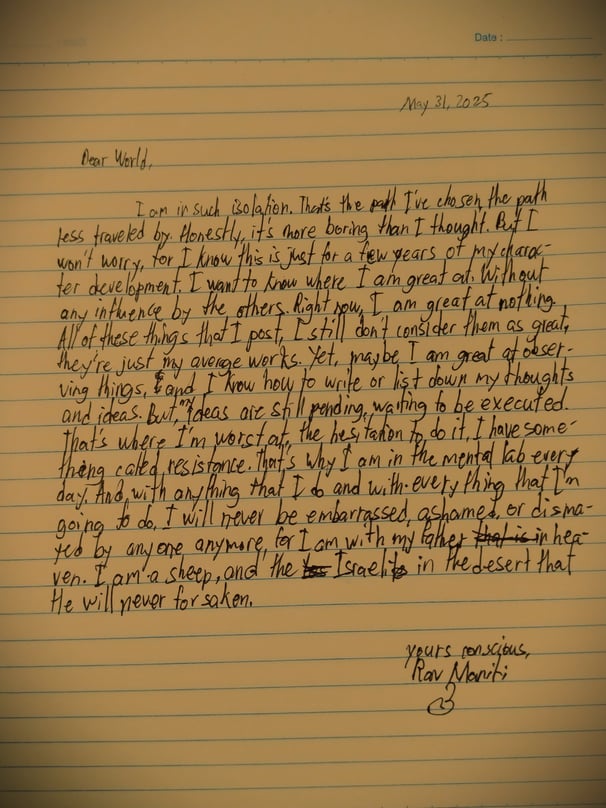 Date :
May 31, 2025
Dear World,
I am in such isolation. That's the path I've chosen, the path
less traveled by. Honestly, it's more boring than I thought. But I
won't worry, for I know this is just for a few years of my charac-
ter development. I want to know where I am great at. Without
any influence by the others. Right now, I am great at nothing.
All of these things that I post, I still don't consider them as great,
they're just my average works. Yet, maybe I am great at obser-
ving things, and I know how to write or list down my thoughts
and ideas. But, my ideas are still pending, waiting to be executed.
That's where I'm worst at, the hesitation to do it, I have some-
thing called resistance. That's why I am in the mental lab every
day. And, with anything that I do and with every thing that I'm
going to do, I will never be embarrassed, ashamed, or disma-
yed by anyone, anymore, for I am with my father that is in hea-
ven. I am a sheep, and the Israelite in the desert that
He will never forsaken.
yours conscious,
Rav Maniti